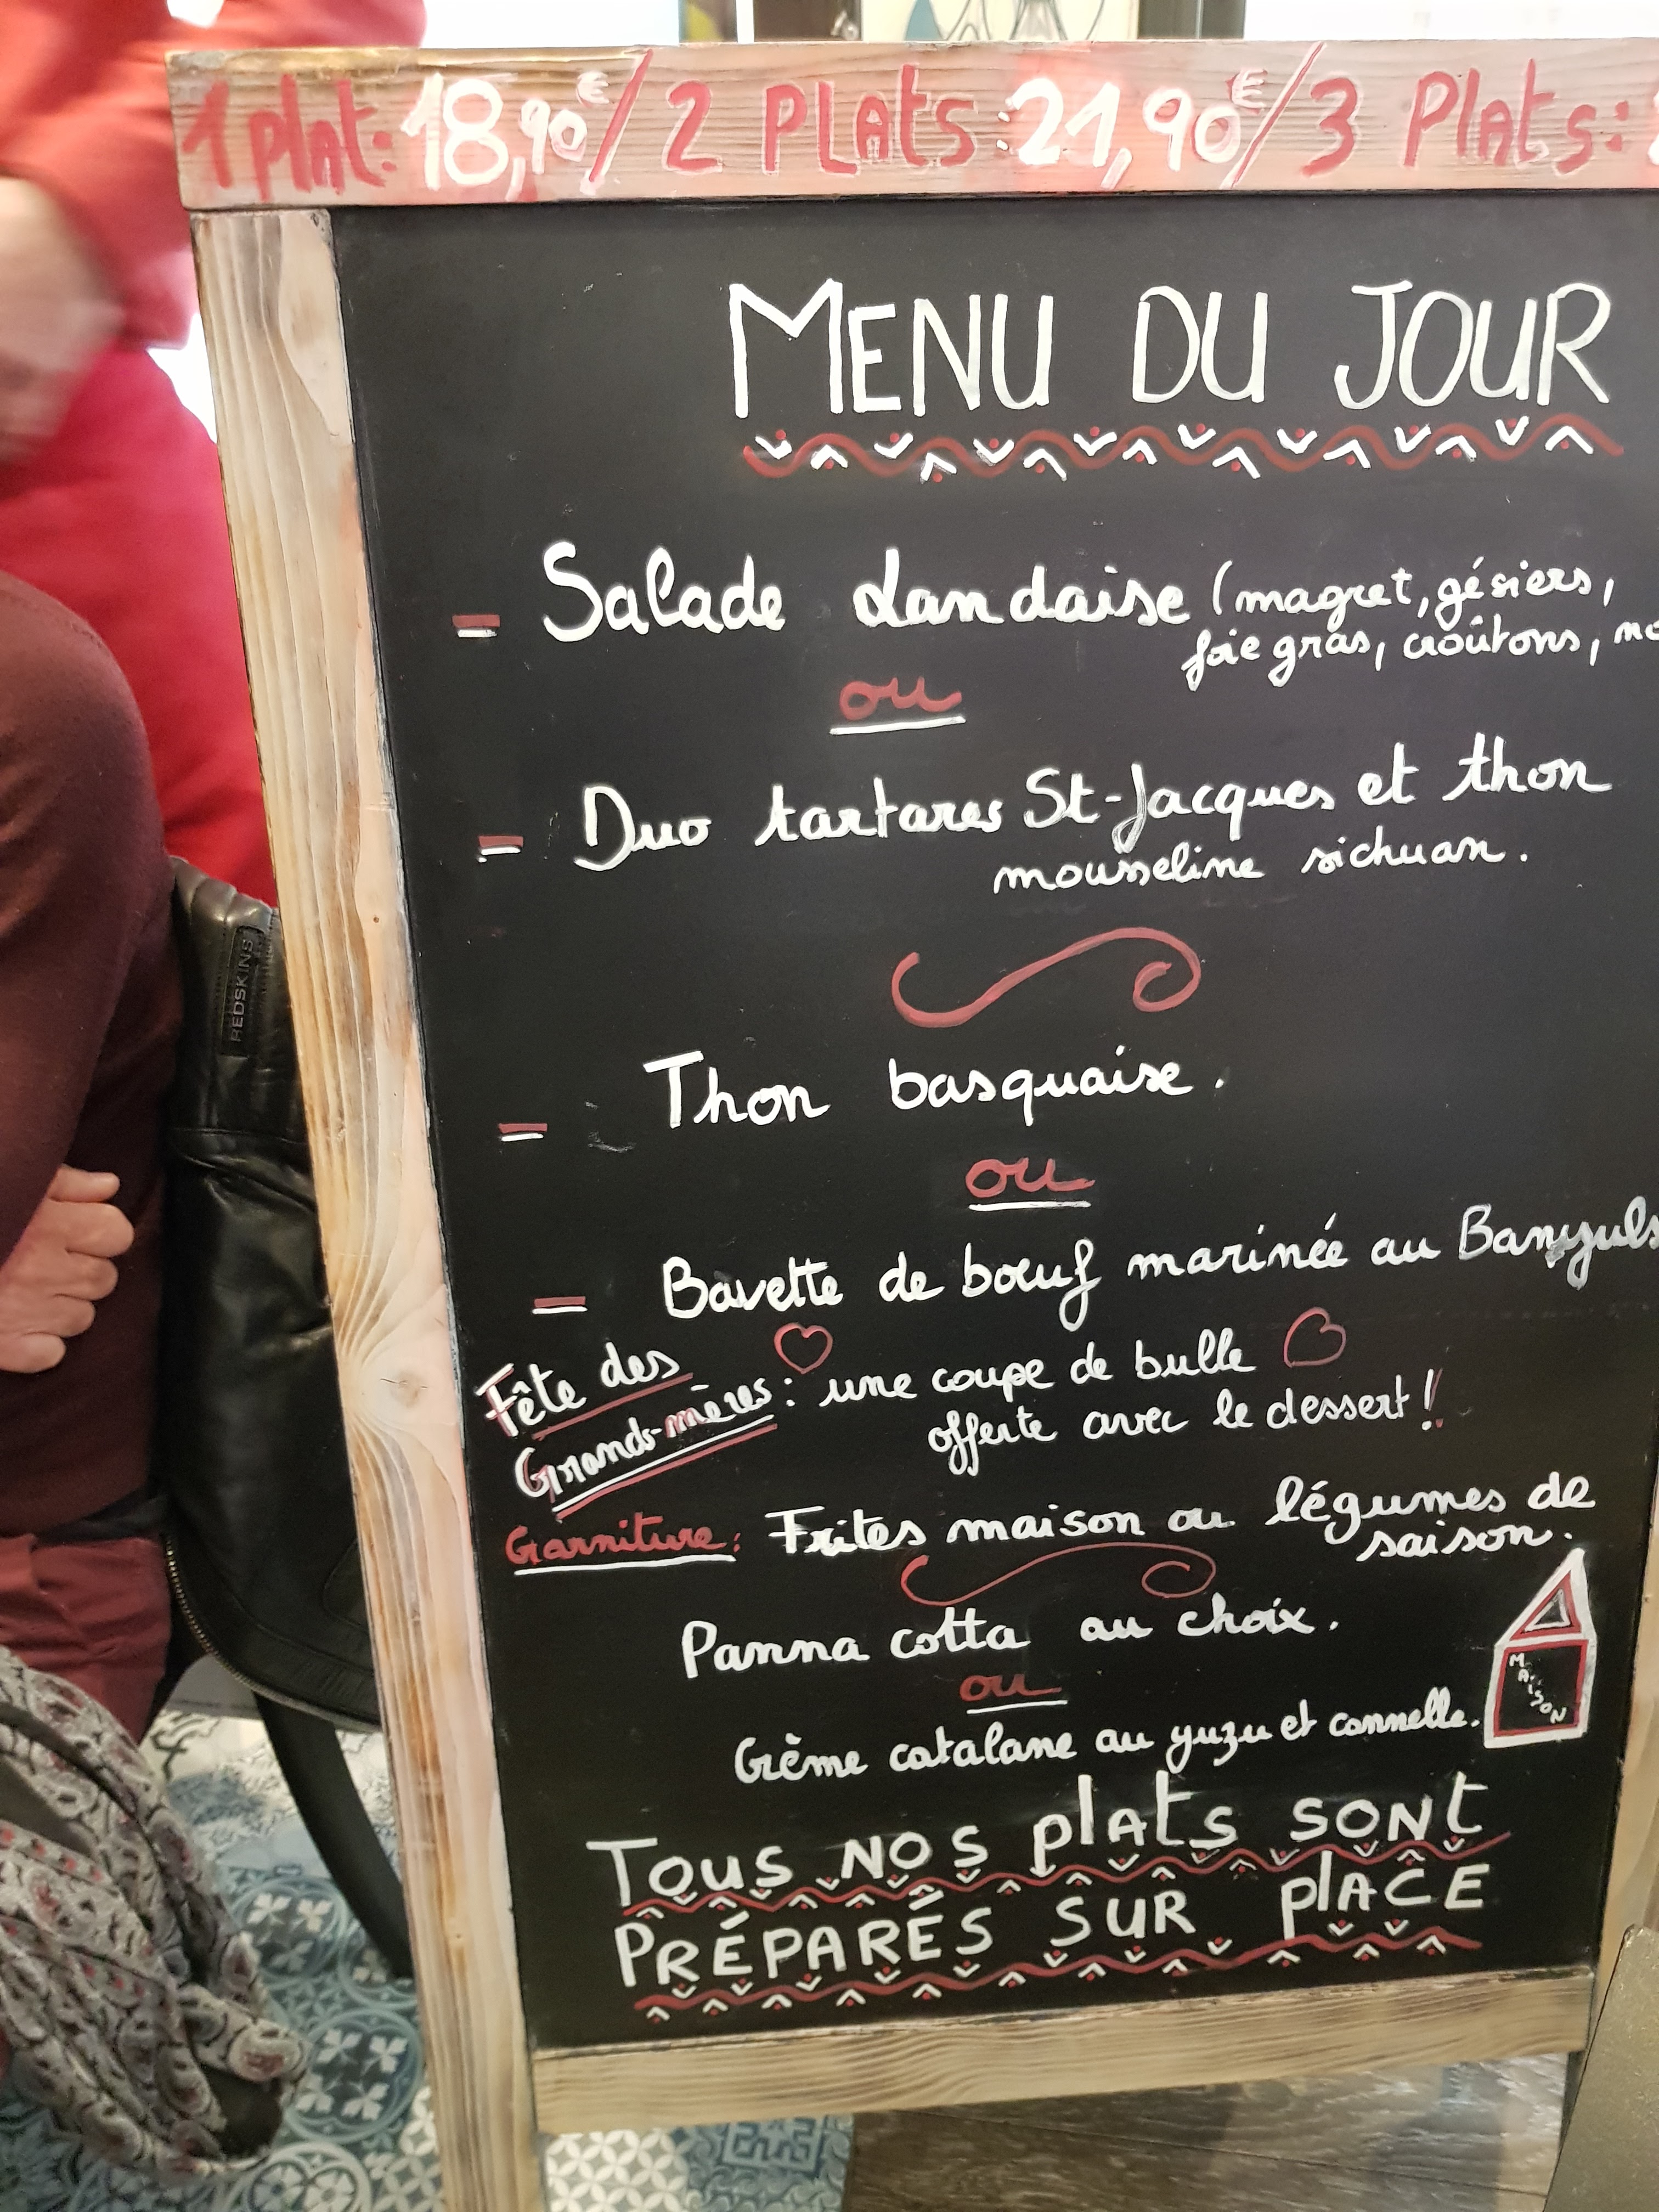 1 plat: 18,90€ / 2 PLAts: 21,90€ / 3 Plats:
MENU DU JOUR
- Salade Landaise (magret, gésiers,
foie gras, croûtons,
ou
- Duo tartares St-Jacques et thon
mousseline sichuan.
- Thon basquaise.
ou
- Bavette de boeuf marinée au Banyuls
Fête des
Grands-mères : une coupe de bulle
offerte avec le dessert !
Garniture: Frites maison ou légumes de
saison.
Panna cotta au choix.
ou
Crème catalane au yuzu et cannelle.
MAISON
Tous nos plats sont
PRÉPARÉS SUR PLACE
REDSKINS